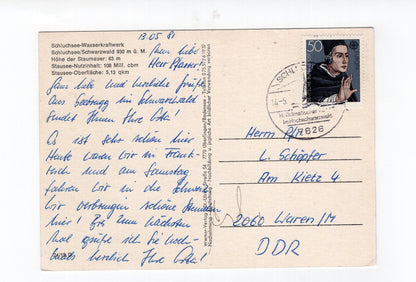 Schluchsee-Wasserkraftwerk
Schluchsee/Schwarzwald 930 m ü. M.
Höhe der Staumauer: 63 m
Stausee-Nutzinhalt: 108 Mill. cbm
Stausee-Oberfläche: 5,13 qkm
13.05.81
Ganz liebe
Herr Pfarrer!
Ganz liebe und herzliche Grüße
aus im Schwarzwald
sendet Ihnen Ihre
Es ist sehr schön hier
Heute waren wir in Frank-
reich und am Samstag
fahren wir in die Schweiz
Wir verbringen schöne Stunden
hier! Bis zum nächsten
Mal grüße ich Sie noch-
mals herzlich Ihre
50
SCHL
7826
Herrn Pfr.
L. Schöpfer
Am Kietz 4
2060 Waren/M
DDR